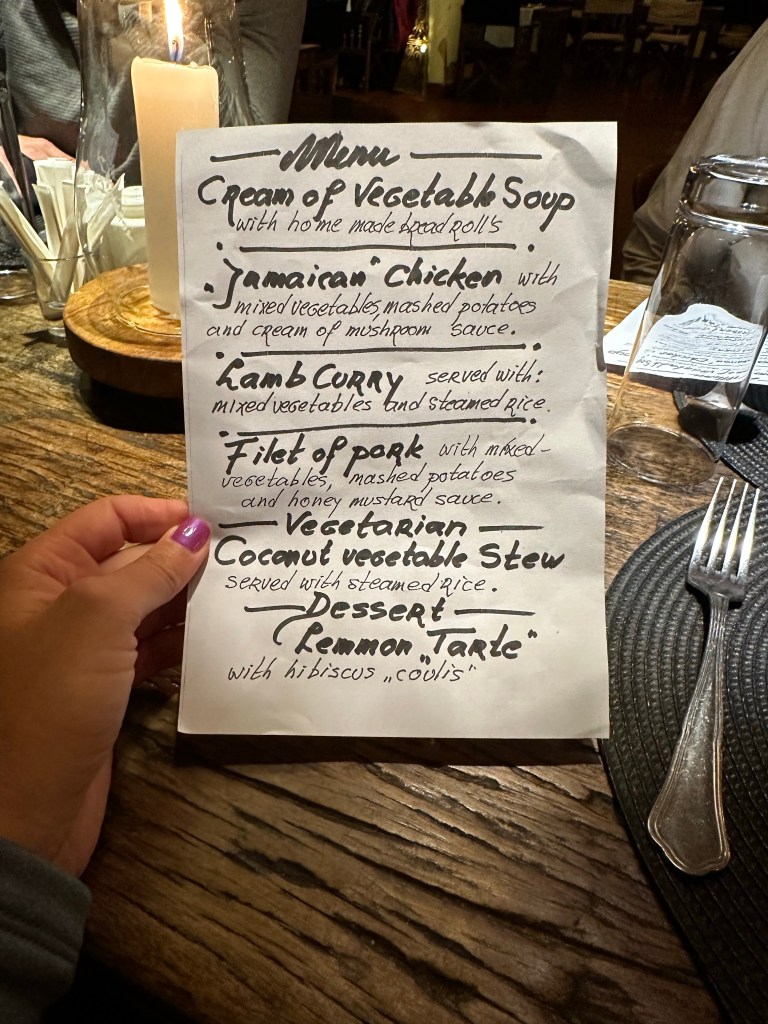 Menu
Cream of Vegetable Soup
with home made bread roll's
„Jamaican" Chicken with
mixed vegetables, mashed potatoes
and cream of mushroom sauce.
Lamb Curry served with:
mixed vegetables and steamed rice.
Filet of pork with mixed-
vegetables, mashed potatoes
and honey mustard sauce.
Vegetarian
Coconut vegetable Stew
served with steamed rice.
Dessert
Lemmon „Tarte"
with hibiscus „coulis"